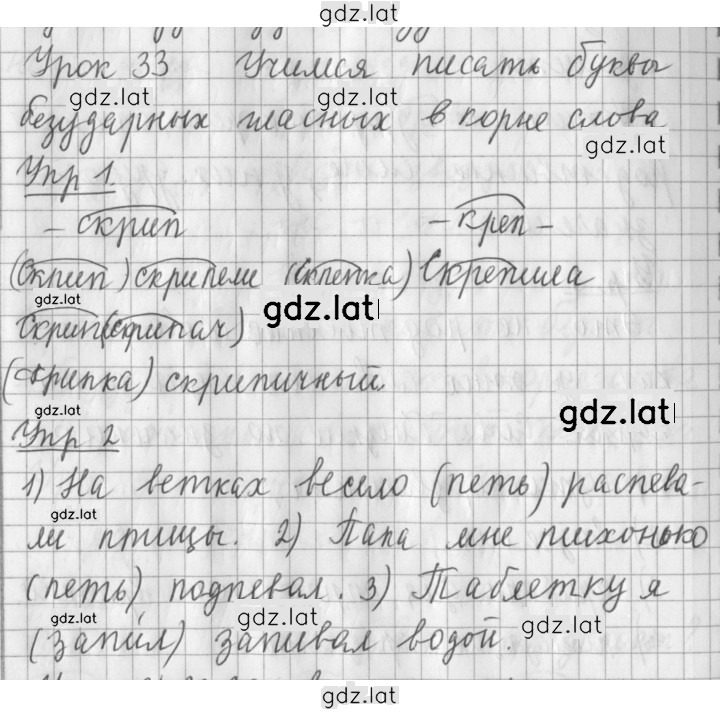 gdz.lat
Урок 33 Учимся писать буквы
gdz.lat
безударных гласных в корне слова
gdz.lat
Упр 1
- скрип - креп -
(Скрип) скрипели (скрепка) Скрепила
gdz.lat gdz.lat
Скрип(скрипач)
(скрипка) скрипичный.
gdz.lat gdz.lat
Упр 2
1) На ветках весело (петь) распева-
gdz.lat
ли птицы. 2) Папа мне тихонько
(петь) подпевал. 3) Таблетку я
gdz.lat gdz.lat
(запил) запивал водой.
gdz.lat